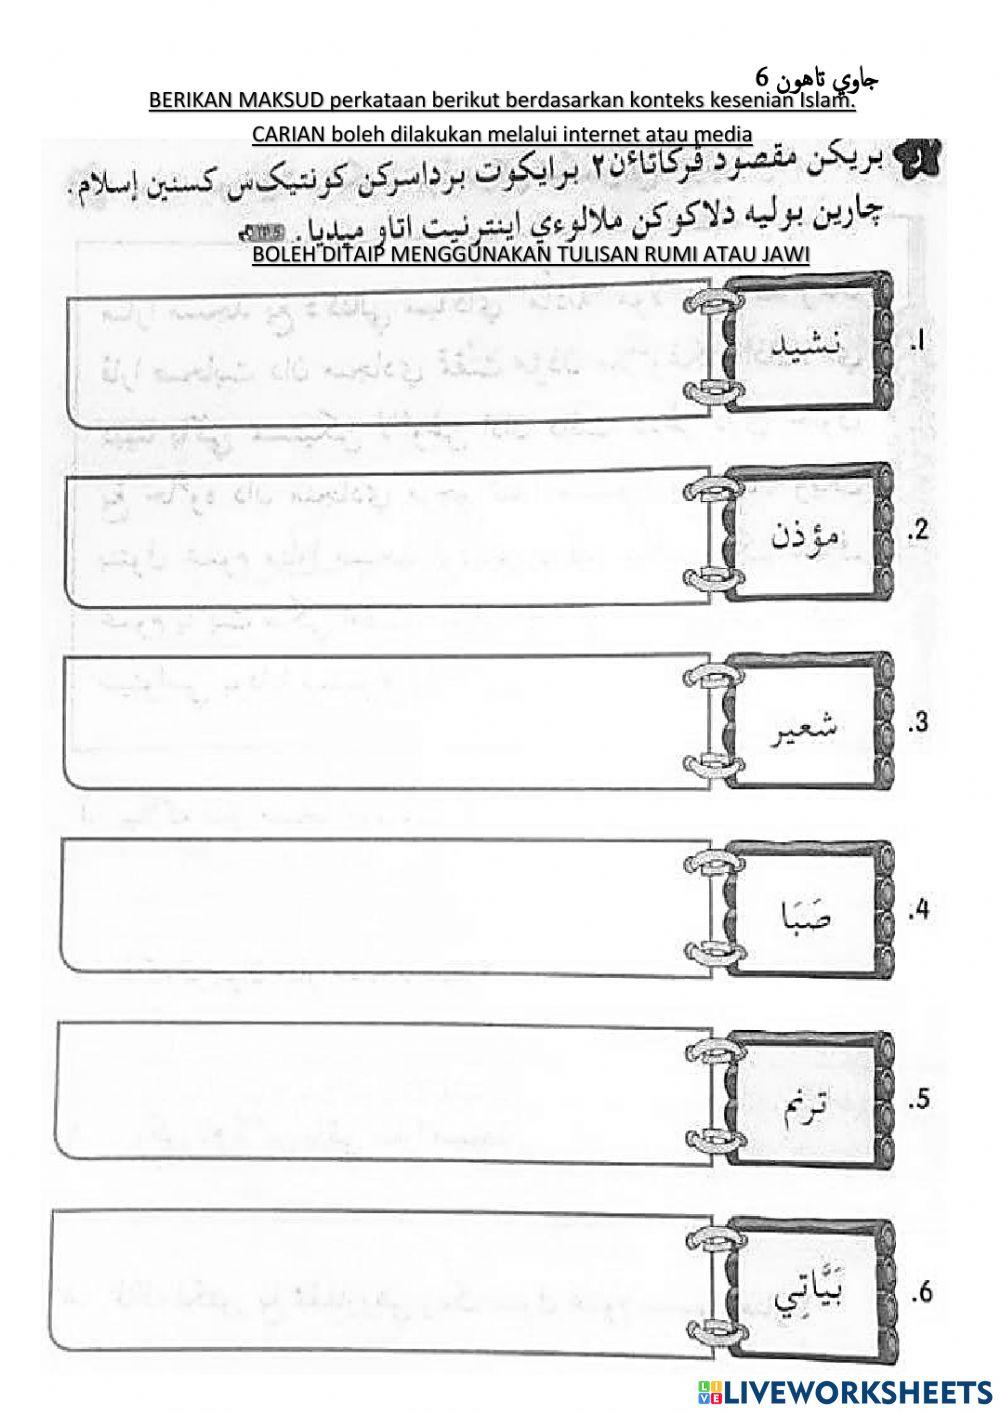 جاوي تاهون 6
BERIKAN MAKSUD perkataan berikut berdasarkan konteks kesenian Islam.
CARIAN boleh dilakukan melalui internet atau media
بريكن مقصود ڤركاتاءن٢ برايكوت برداسركن كونتيكس كسنين إسلام.
چارين بوليه دلاكوكن ملالوءي اينترنيت اتاو ميديا.
BOLEH DITAIP MENGGUNAKAN TULISAN RUMI ATAU JAWI
1. نشيد
2. مؤذن
3. شعير
4. صَبَا
5. ترنم
6. بَيَّاتي
LIVEWORKSHEETS